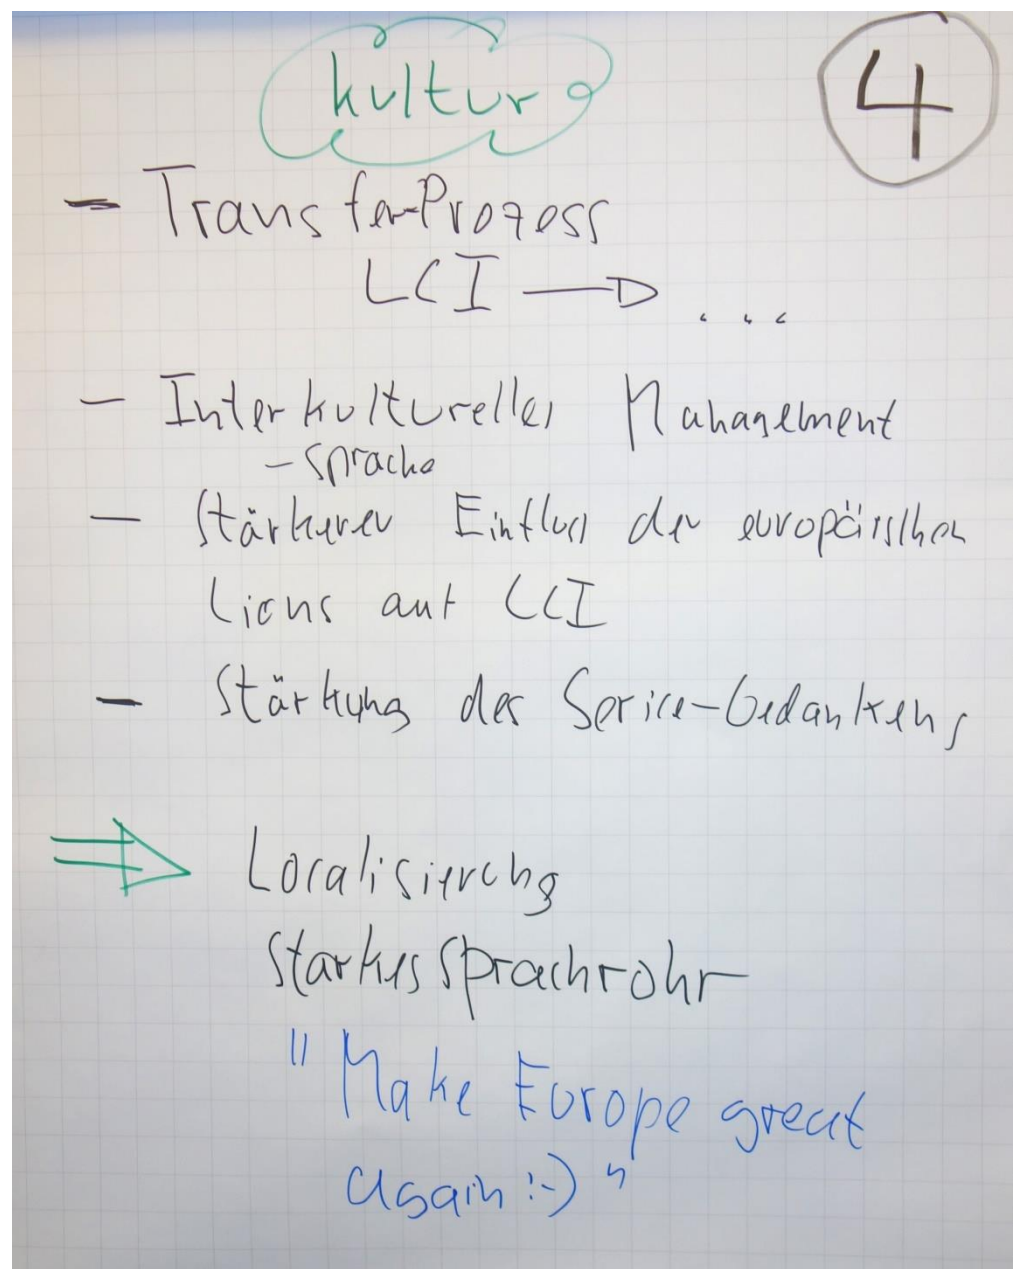 kultur
4
- Transfer-Prozess
LCI → ...
- Interkulturelles Management
- Sprache
- Stärkerer Einfluss der europäischen
Lions auf LCI
- Stärkung des Serice-Gedankens
⇒ Localisierung
starkes Sprachrohr
"Make Europe great
again :-)"